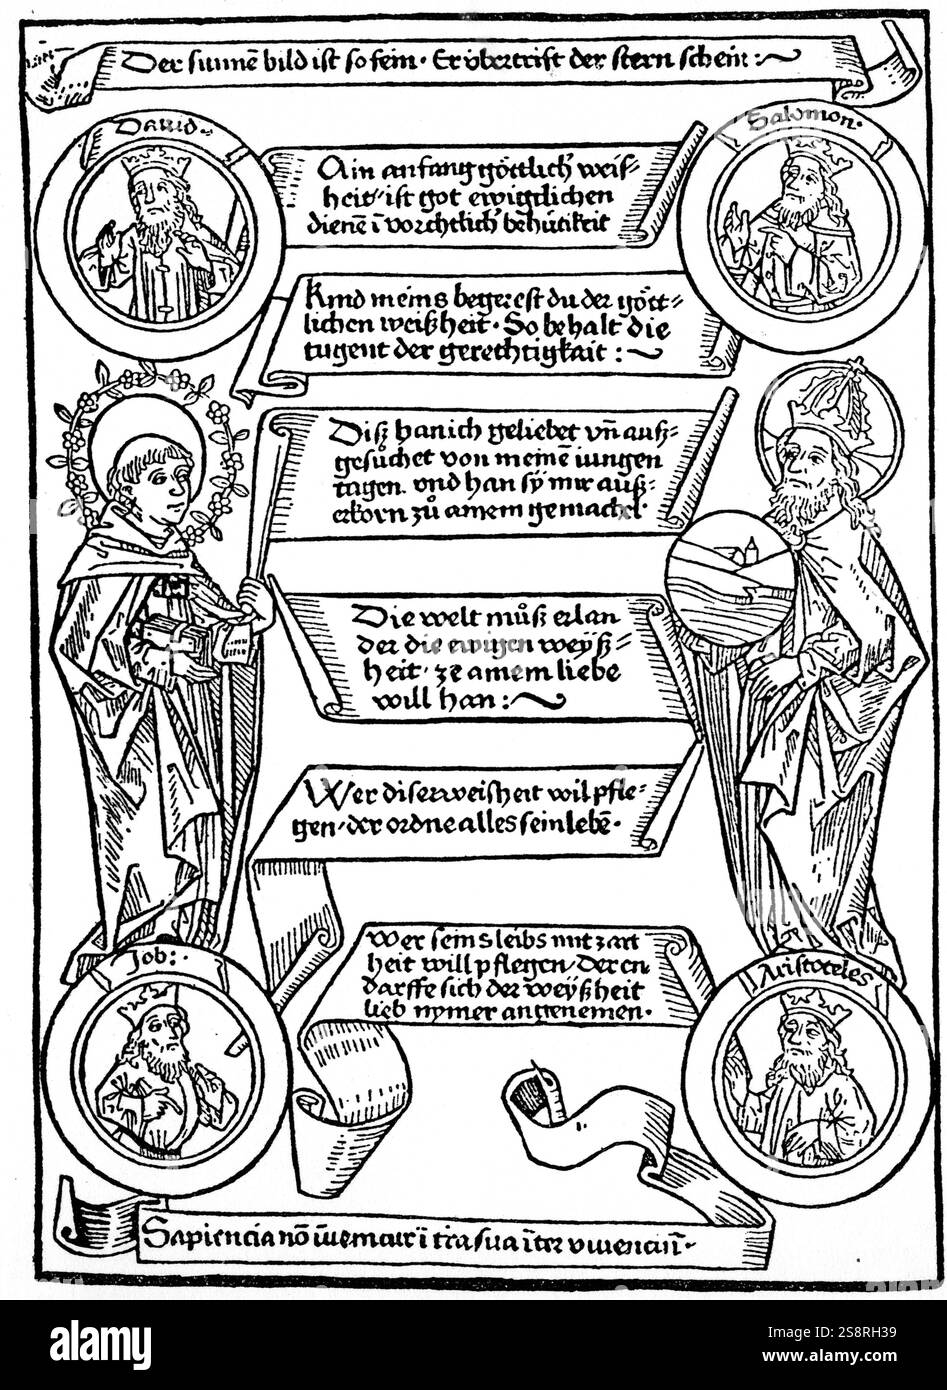 Der sunnē bild ist so fein · Er übertrift der stern schein :~
David ·
Salomon ·
Ain anfang göttlich' weis=
heit · ist got ewigtlichen
dienē ī vorchtlich' behütikeit
Kind meins begerest du der gött=
lichen weißheit · So behalt die
tugent der gerechtigkait : ~
Diß han ich geliebet vn̄ auß=
gesůchet von meinē iungen
tagen · vnd han sÿ mir auß=
erkorn zů ainem gemachel ·
Die welt můß erlan
der die ewigen weyß=
heit · ze ainem liebe
will han : ~
Wer diser weisheit wil pfle=
gen · der ordne alles sein lebē ·
Wer seins leibs mit zart
heit will pflegen / Der en
darffe sich der weyßheit
lieb nymer an genemen ·
Job :·
Aristoteles
Sapiencia nō īvenitur ī t'ra sua
alamy
Image ID: 2S8RH39
www.alamy.com